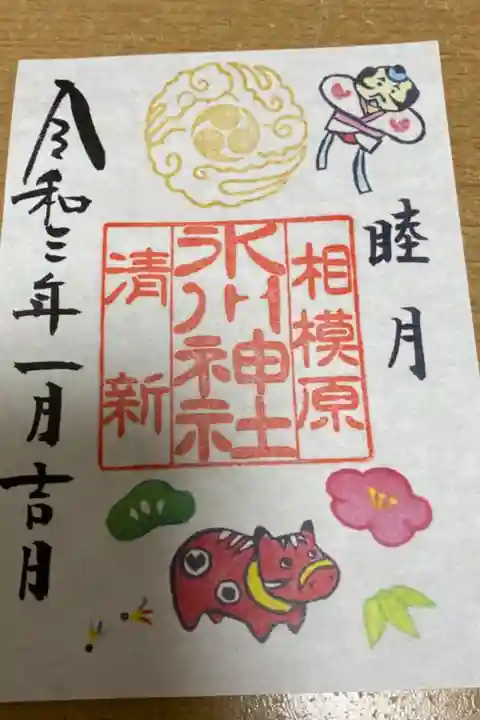 睦月
相模原
氷川神社
清新
令和三年一月吉日